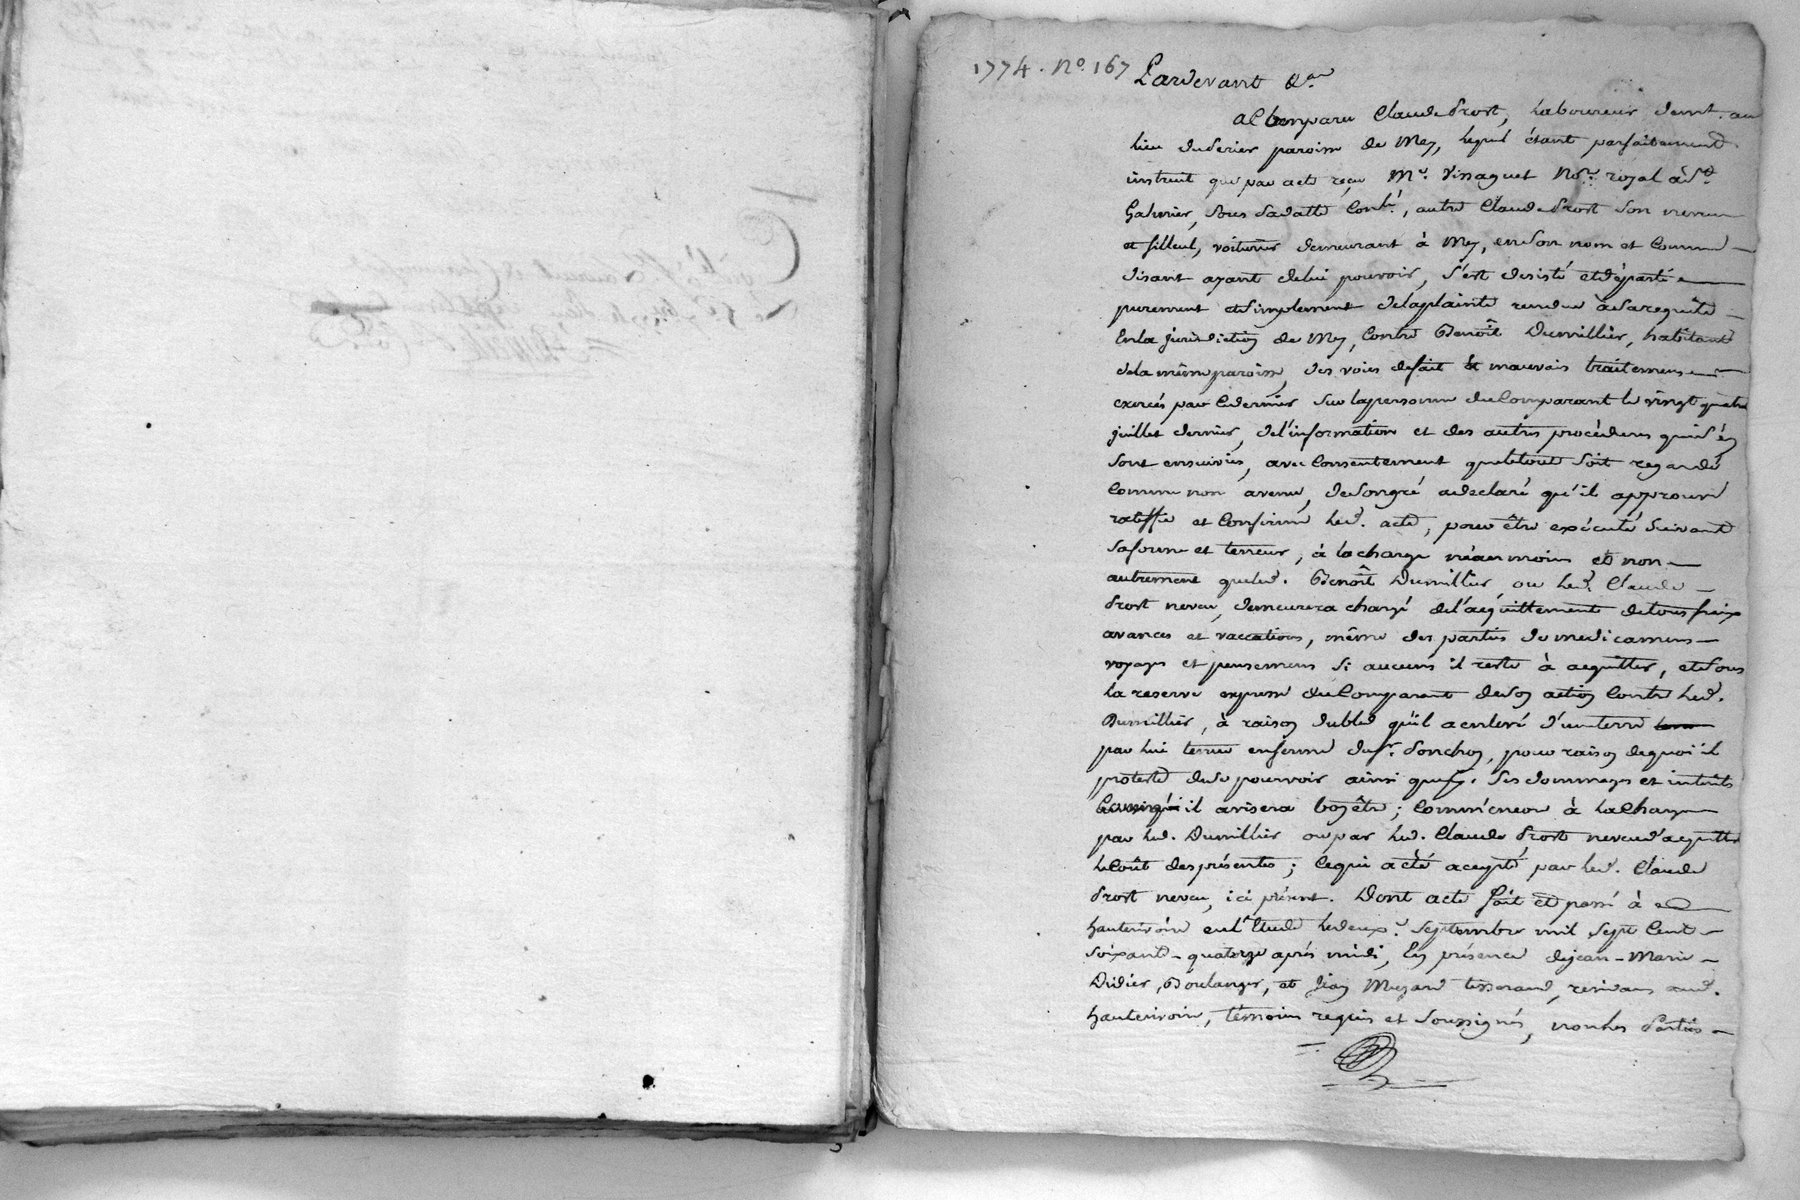 1774. No. 167
Pardevant &a.
a Comparu Claude Prost, Laboureur demt. au
lieu du Perier paroisse de Mey, lequel étant parfaitement
instruit que par acte reçu Me. Vinaguet Nore. royal à St.
Galmier, sous sa datte Conle., autre Claude Prost son neveu
et filleul, voiturier demeurant à Mey, en son nom et Comme
disant ayant de lui pouvoir, s'est desisté et départi
purement et simplement de la plainte rendue à sa requête
En la jurisdiction de Mey, Contre Benoît Dumillier, habitant
de la même paroisse, des voies de fait et mauvais traitemens
exercés par Ce dernier sur la personne du Comparant le vingt quatre
juillet dernier, de l'information et des autres procédures qui s'en
sont ensuivies, avec Consentement que le tout soit regardé
Comme non avenu, de son gré a declaré qu'il approuve
ratiffie et Confirme led. acte, pour être exécuté suivant
sa forme et teneur, à la charge néanmoins et non
autrement que led. Benoît Dumillier ou led. Claude
Prost neveu, demeurera chargé de l'acquittement de tous fraix
avances et vaccations, même des parties de medicamens
voyages et pensemens si aucuns il reste à acquitter, et sous
la reserve expresse du Comparant de son action Contre led.
Dumillier, à raison du bled qu'il a enlevé d'une terre
par lui tenue en ferme du sr. Ponchon, pour raison de quoi il
proteste de se pourvoir ainsi que pr. ses dommages et intérêts
il avisera bon être; Comm'encor à la Charge
par led. Dumillier ou par led. Claude Prost neveu d'acquitter
le Coût des présentes; Ce qui a été accepté par led. Claude
Prost neveu, ici présent. Dont acte fait et passé à
hauterivoire en l'Etude le deuxe. septembre mil sept Cent
soixante-quatorze après midi, En présence de jean-Marie
Didier, Boulanger, et Jean Mezard tisserand, residans aud.
hauterivoire, témoins requis et soussignés, non les Parties